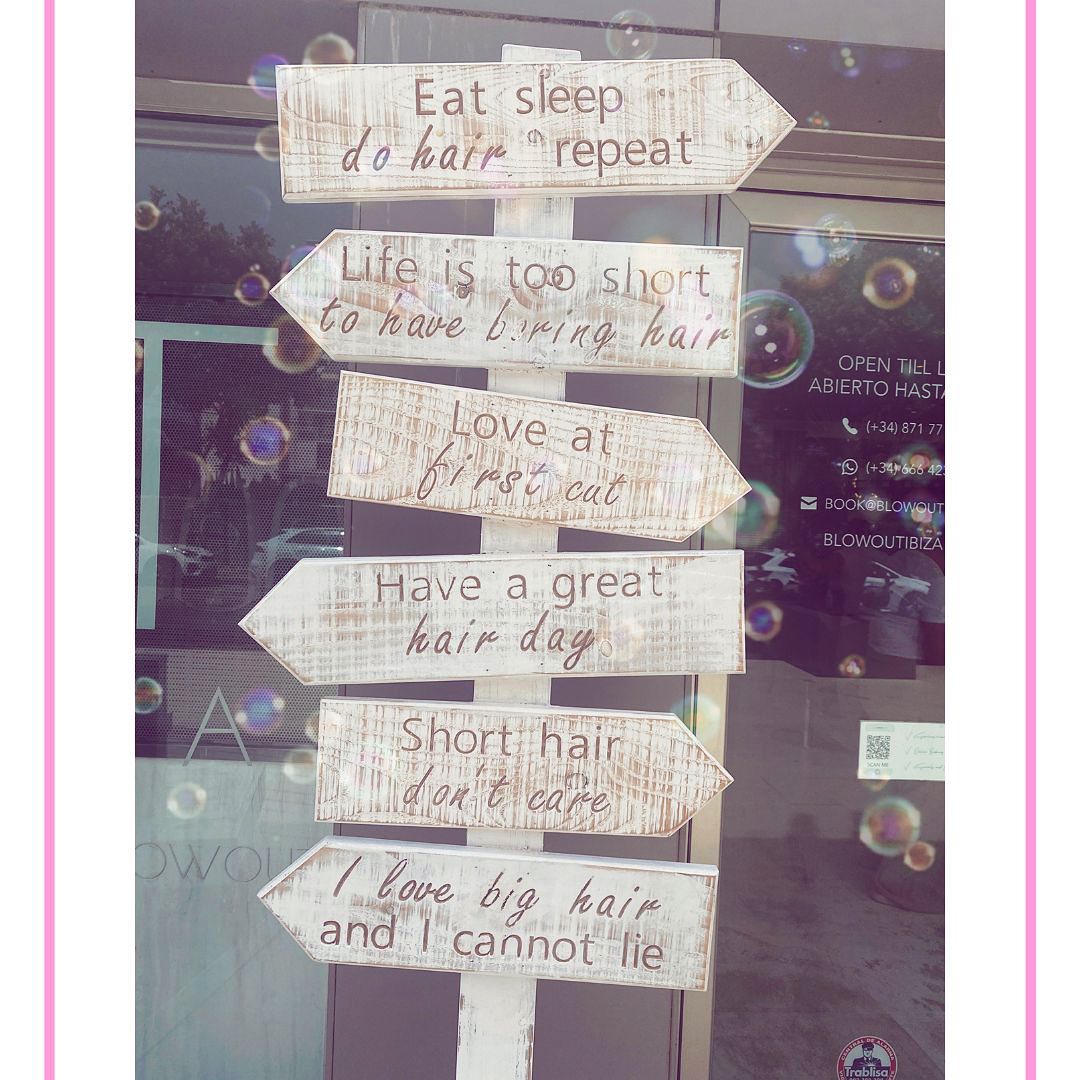 Eat sleep
do hair repeat
Life is too short
to have boring hair
Love at
first cut
Have a great
hair day
Short hair
don't care
I love big hair
and I cannot lie
OPEN TILL L
ABIERTO HASTA
(+34) 871 77
(+34) 666 423
BOOK@BLOWOUT
BLOWOUTIBIZA
SCAN ME
A
OWOUT
CENTRAL DE ALARMA
Trablisa